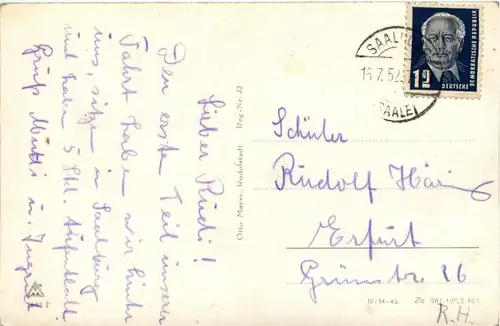 Lieber Rudi!
Den ersten Teil unserer
Fahrt haben wir hinter
uns, sitzen in Saalburg
und haben 5 Std. Aufenthalt
Gruß Mutti u. Ingrid
Otto Mayer, Rudolstadt Reg.-Nr. 22
SAALE
16.7.52
(SAALE)
12
DEUTSCHE
DEMOKRATISCHE REPUBLIK
Schüler
Rudolf
Erfurt
Grünstr 26
IV-14-45
R.H.